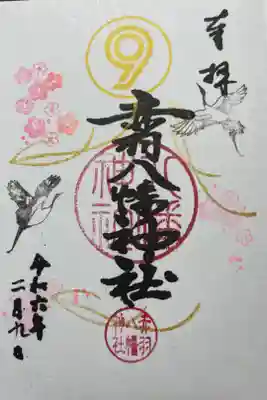 奉拝
9
赤羽八幡神社
八幡
神社
赤羽
八幡
神社
令和六年
二月九日